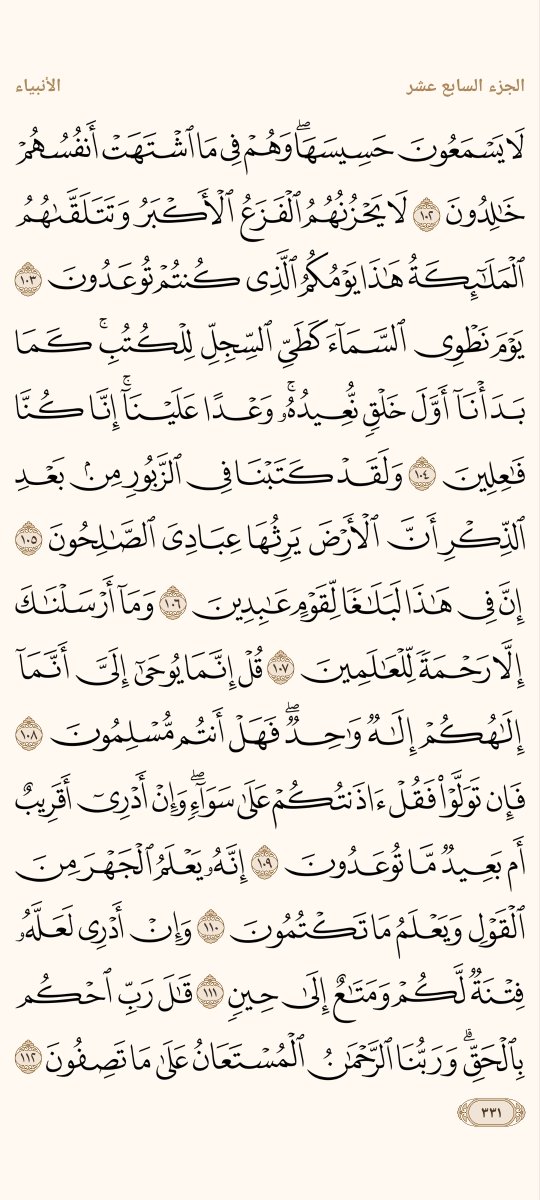 الجزء السابع عشر
الأنبياء
لَا يَسْمَعُونَ حَسِيسَهَاۖ وَهُمْ فِى مَا ٱشْتَهَتْ أَنفُسُهُمْ
خَٰلِدُونَ ١٠٢ لَا يَحْزُنُهُمُ ٱلْفَزَعُ ٱلْأَكْبَرُ وَتَتَلَقَّىٰهُمُ
ٱلْمَلَٰٓئِكَةُ هَٰذَا يَوْمُكُمُ ٱلَّذِى كُنتُمْ تُوعَدُونَ ١٠٣
يَوْمَ نَطْوِى ٱلسَّمَآءَ كَطَىِّ ٱلسِّجِلِّ لِلْكُتُبِۚ كَمَا
بَدَأْنَآ أَوَّلَ خَلْقٍ نُّعِيدُهُۥۚ وَعْدًا عَلَيْنَآۚ إِنَّا كُنَّا
فَٰعِلِينَ ١٠٤ وَلَقَدْ كَتَبْنَا فِى ٱلزَّبُورِ مِنۢ بَعْدِ
ٱلذِّكْرِ أَنَّ ٱلْأَرْضَ يَرِثُهَا عِبَادِىَ ٱلصَّٰلِحُونَ ١٠٥
إِنَّ فِى هَٰذَا لَبَلَٰغًا لِّقَوْمٍ عَٰبِدِينَ ١٠٦ وَمَآ أَرْسَلْنَٰكَ
إِلَّا رَحْمَةً لِّلْعَٰلَمِينَ ١٠٧ قُلْ إِنَّمَا يُوحَىٰٓ إِلَىَّ أَنَّمَآ
إِلَٰهُكُمْ إِلَٰهٌ وَٰحِدٌۖ فَهَلْ أَنتُم مُّسْلِمُونَ ١٠٨
فَإِن تَوَلَّوْا۟ فَقُلْ ءَاذَنتُكُمْ عَلَىٰ سَوَآءٍۖ وَإِنْ أَدْرِىٓ أَقَرِيبٌ
أَم بَعِيدٌ مَّا تُوعَدُونَ ١٠٩ إِنَّهُۥ يَعْلَمُ ٱلْجَهْرَ مِنَ
ٱلْقَوْلِ وَيَعْلَمُ مَا تَكْتُمُونَ ١١٠ وَإِنْ أَدْرِى لَعَلَّهُۥ
فِتْنَةٌ لَّكُمْ وَمَتَٰعٌ إِلَىٰ حِينٍ ١١١ قَٰلَ رَبِّ ٱحْكُم
بِٱلْحَقِّۗ وَرَبُّنَا ٱلرَّحْمَٰنُ ٱلْمُسْتَعَانُ عَلَىٰ مَا تَصِفُونَ ١١٢
٣٣١